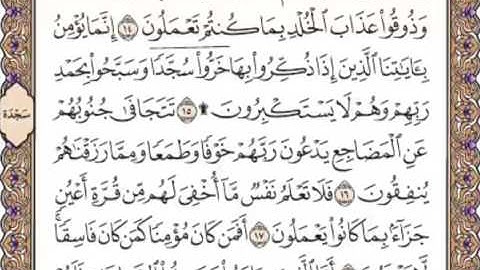 وَذُوقُوا۟ عَذَابَ ٱلْخُلْدِ بِمَا كُنتُمْ تَعْمَلُونَ ١٤ إِنَّمَا يُؤْمِنُ
بِـَٔايَـٰتِنَا ٱلَّذِينَ إِذَا ذُكِّرُوا۟ بِهَا خَرُّوا۟ سُجَّدًا وَسَبَّحُوا۟ بِحَمْدِ
رَبِّهِمْ وَهُمْ لَا يَسْتَكْبِرُونَ ۩ ١٥ تَتَجَافَىٰ جُنُوبُهُمْ
سَجْدَة
عَنِ ٱلْمَضَاجِعِ يَدْعُونَ رَبَّهُمْ خَوْفًا وَطَمَعًا وَمِمَّا رَزَقْنَـٰهُمْ
يُنفِقُونَ ١٦ فَلَا تَعْلَمُ نَفْسٌ مَّآ أُخْفِىَ لَهُم مِّن قُرَّةِ أَعْيُنٍ
جَزَآءًۢ بِمَا كَانُوا۟ يَعْمَلُونَ ١٧ أَفَمَن كَانَ مُؤْمِنًا كَمَن كَانَ فَاسِقًا ۚ